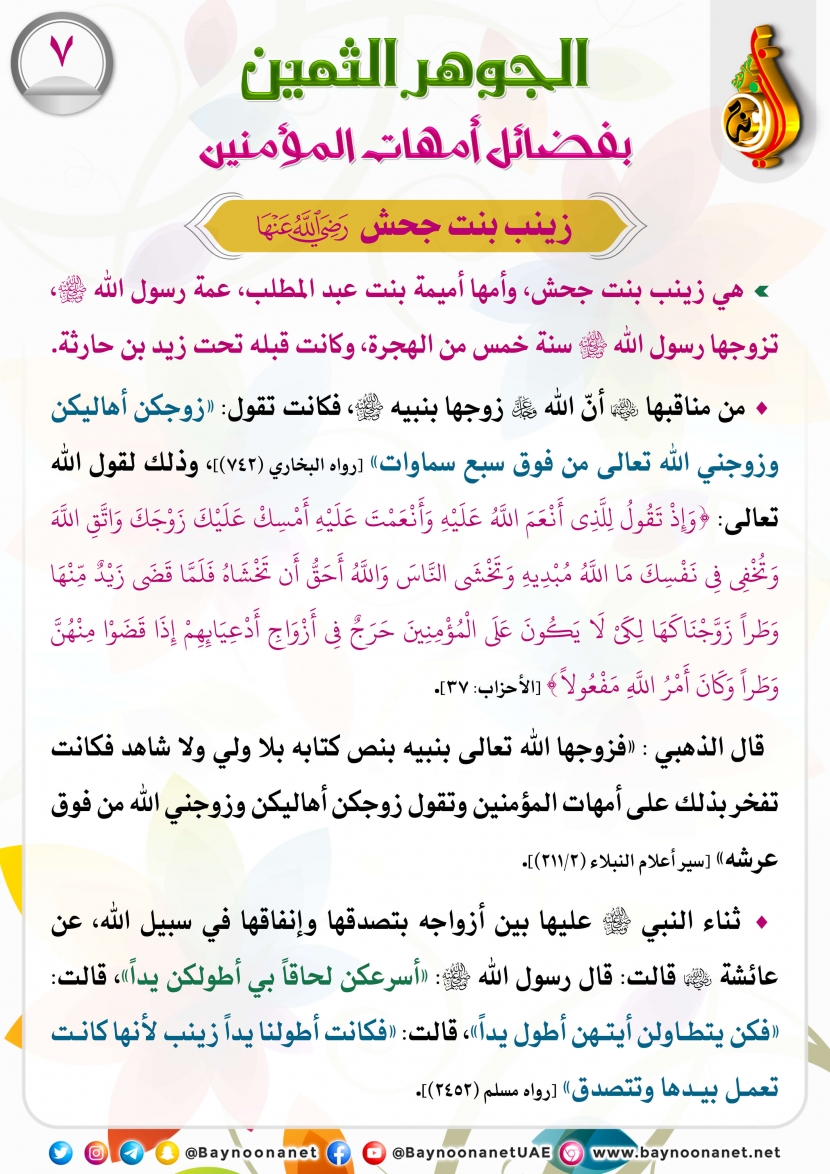 ٧
الجوهر الثمين
بفضائل أمهات المؤمنين
زينب بنت جحش رَضِيَ اللَّهُ عَنْهَا
هي زينب بنت جحش، وأمها أميمة بنت عبد المطلب، عمة رسول الله ﷺ،
تزوجها رسول الله ﷺ سنة خمس من الهجرة، وكانت قبله تحت زيد بن حارثة.
♦ من مناقبها رضي الله عنها أنّ الله عز وجل زوجها بنبيه ﷺ، فكانت تقول: «زوجكن أهاليكن
وزوجني الله تعالى من فوق سبع سماوات» [رواه البخاري (٧٤٢)]، وذلك لقول الله
تعالى: ﴿وَإِذْ تَقُولُ لِلَّذِى أَنْعَمَ اللَّهُ عَلَيْهِ وَأَنْعَمْتَ عَلَيْهِ أَمْسِكْ عَلَيْكَ زَوْجَكَ وَاتَّقِ اللَّهَ
وَتُخْفِى فِى نَفْسِكَ مَا اللَّهُ مُبْدِيهِ وَتَخْشَى النَّاسَ وَاللَّهُ أَحَقُّ أَن تَخْشَاهُ فَلَمَّا قَضَى زَيْدٌ مِّنْهَا
وَطَراً زَوَّجْنَاكَهَا لِكَىْ لَا يَكُونَ عَلَى الْمُؤْمِنِينَ حَرَجٌ فِى أَزْوَاجِ أَدْعِيَائِهِمْ إِذَا قَضَوْا مِنْهُنَّ
وَطَراً وَكَانَ أَمْرُ اللَّهِ مَفْعُولاً﴾ [الأحزاب: ٣٧].
قال الذهبي : «فزوجها الله تعالى بنبيه بنص كتابه بلا ولي ولا شاهد فكانت
تفخر بذلك على أمهات المؤمنين وتقول زوجكن أهاليكن وزوجني الله من فوق
عرشه» [سير أعلام النبلاء (٢١١/٢)].
♦ ثناء النبي ﷺ عليها بين أزواجه بتصدقها وإنفاقها في سبيل الله، عن
عائشة رضي الله عنها قالت: قال رسول الله ﷺ: «أسرعكن لحاقاً بي أطولكن يداً»، قالت:
«فكن يتطاولن أيتهن أطول يداً»، قالت: «فكانت أطولنا يداً زينب لأنها كانت
تعمل بيدها وتتصدق» [رواه مسلم (٢٤٥٢)].
@Baynoonanet @BaynoonanetUAE www.baynoonanet.net